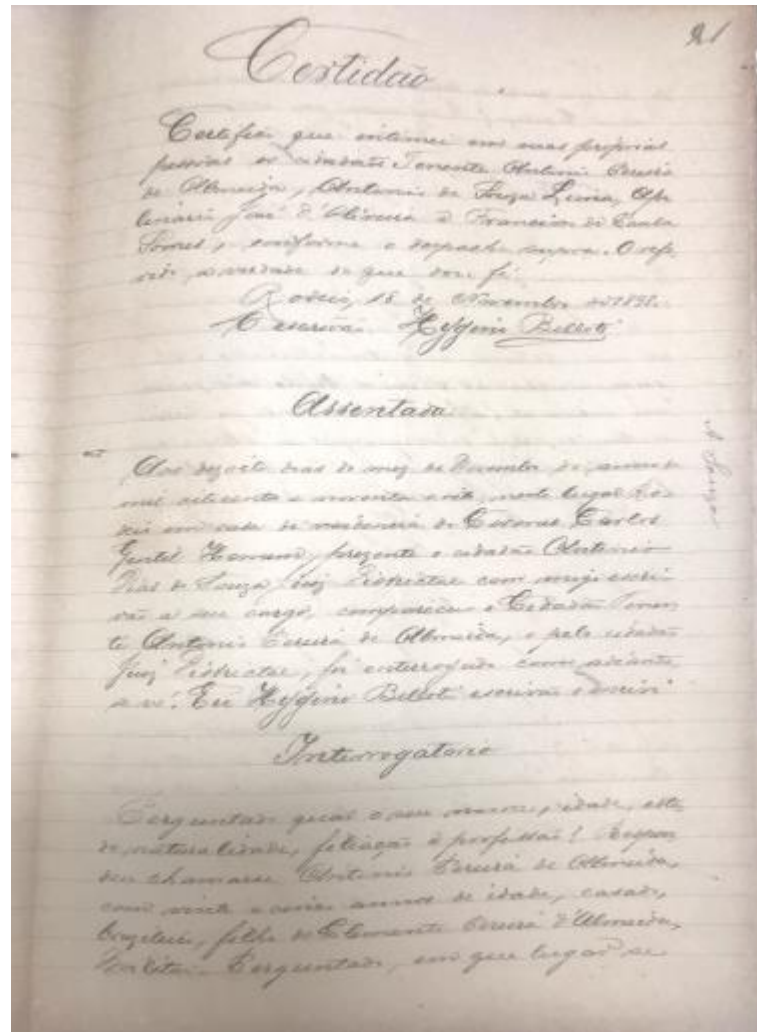 21
Certidão
Certifico que intimei em suas proprias
pessoas os cidadãos Tenente Antonio Pereira
de Almeida, Antonio de Souza Lima, Apo
linario José d'Oliveira e Francisco de Paula
Soares, conforme o despacho supra. O refe
rido é verdade do que dou fé.
Rodeio, 18 de Novembro de 1898.
O escrivão Hygino Bellotti
Assentada
Aos dezoito dias do mez de Novembro de
mil oitocento e noventa e oito, neste lugar Ro
deio em casa de residencia do Carlos
Gentil Homem, prezente o cidadão Antonio
Dias de Souza, Juiz Districtal com migo escri
vão a seu cargo, compareceu o Cidadão Tenen
te Antonio Pereira de Almeida, e pelo cidadão
Juiz Districtal, foi enterrogado como adiante
se vê. Eu Hygino Bellotti escrivão o escrivi
A Souza
Interrogatorio
Perguntado qual o seu nome, idade, esta
do, naturalidade, filiação e profissão? Respon
deu chamarse Antonio Pereira de Almeida,
com vinte e annos de idade, casado,
brazileiro, filho de Clemente Pereira d'Almeida,
Perguntado, em que lugar se